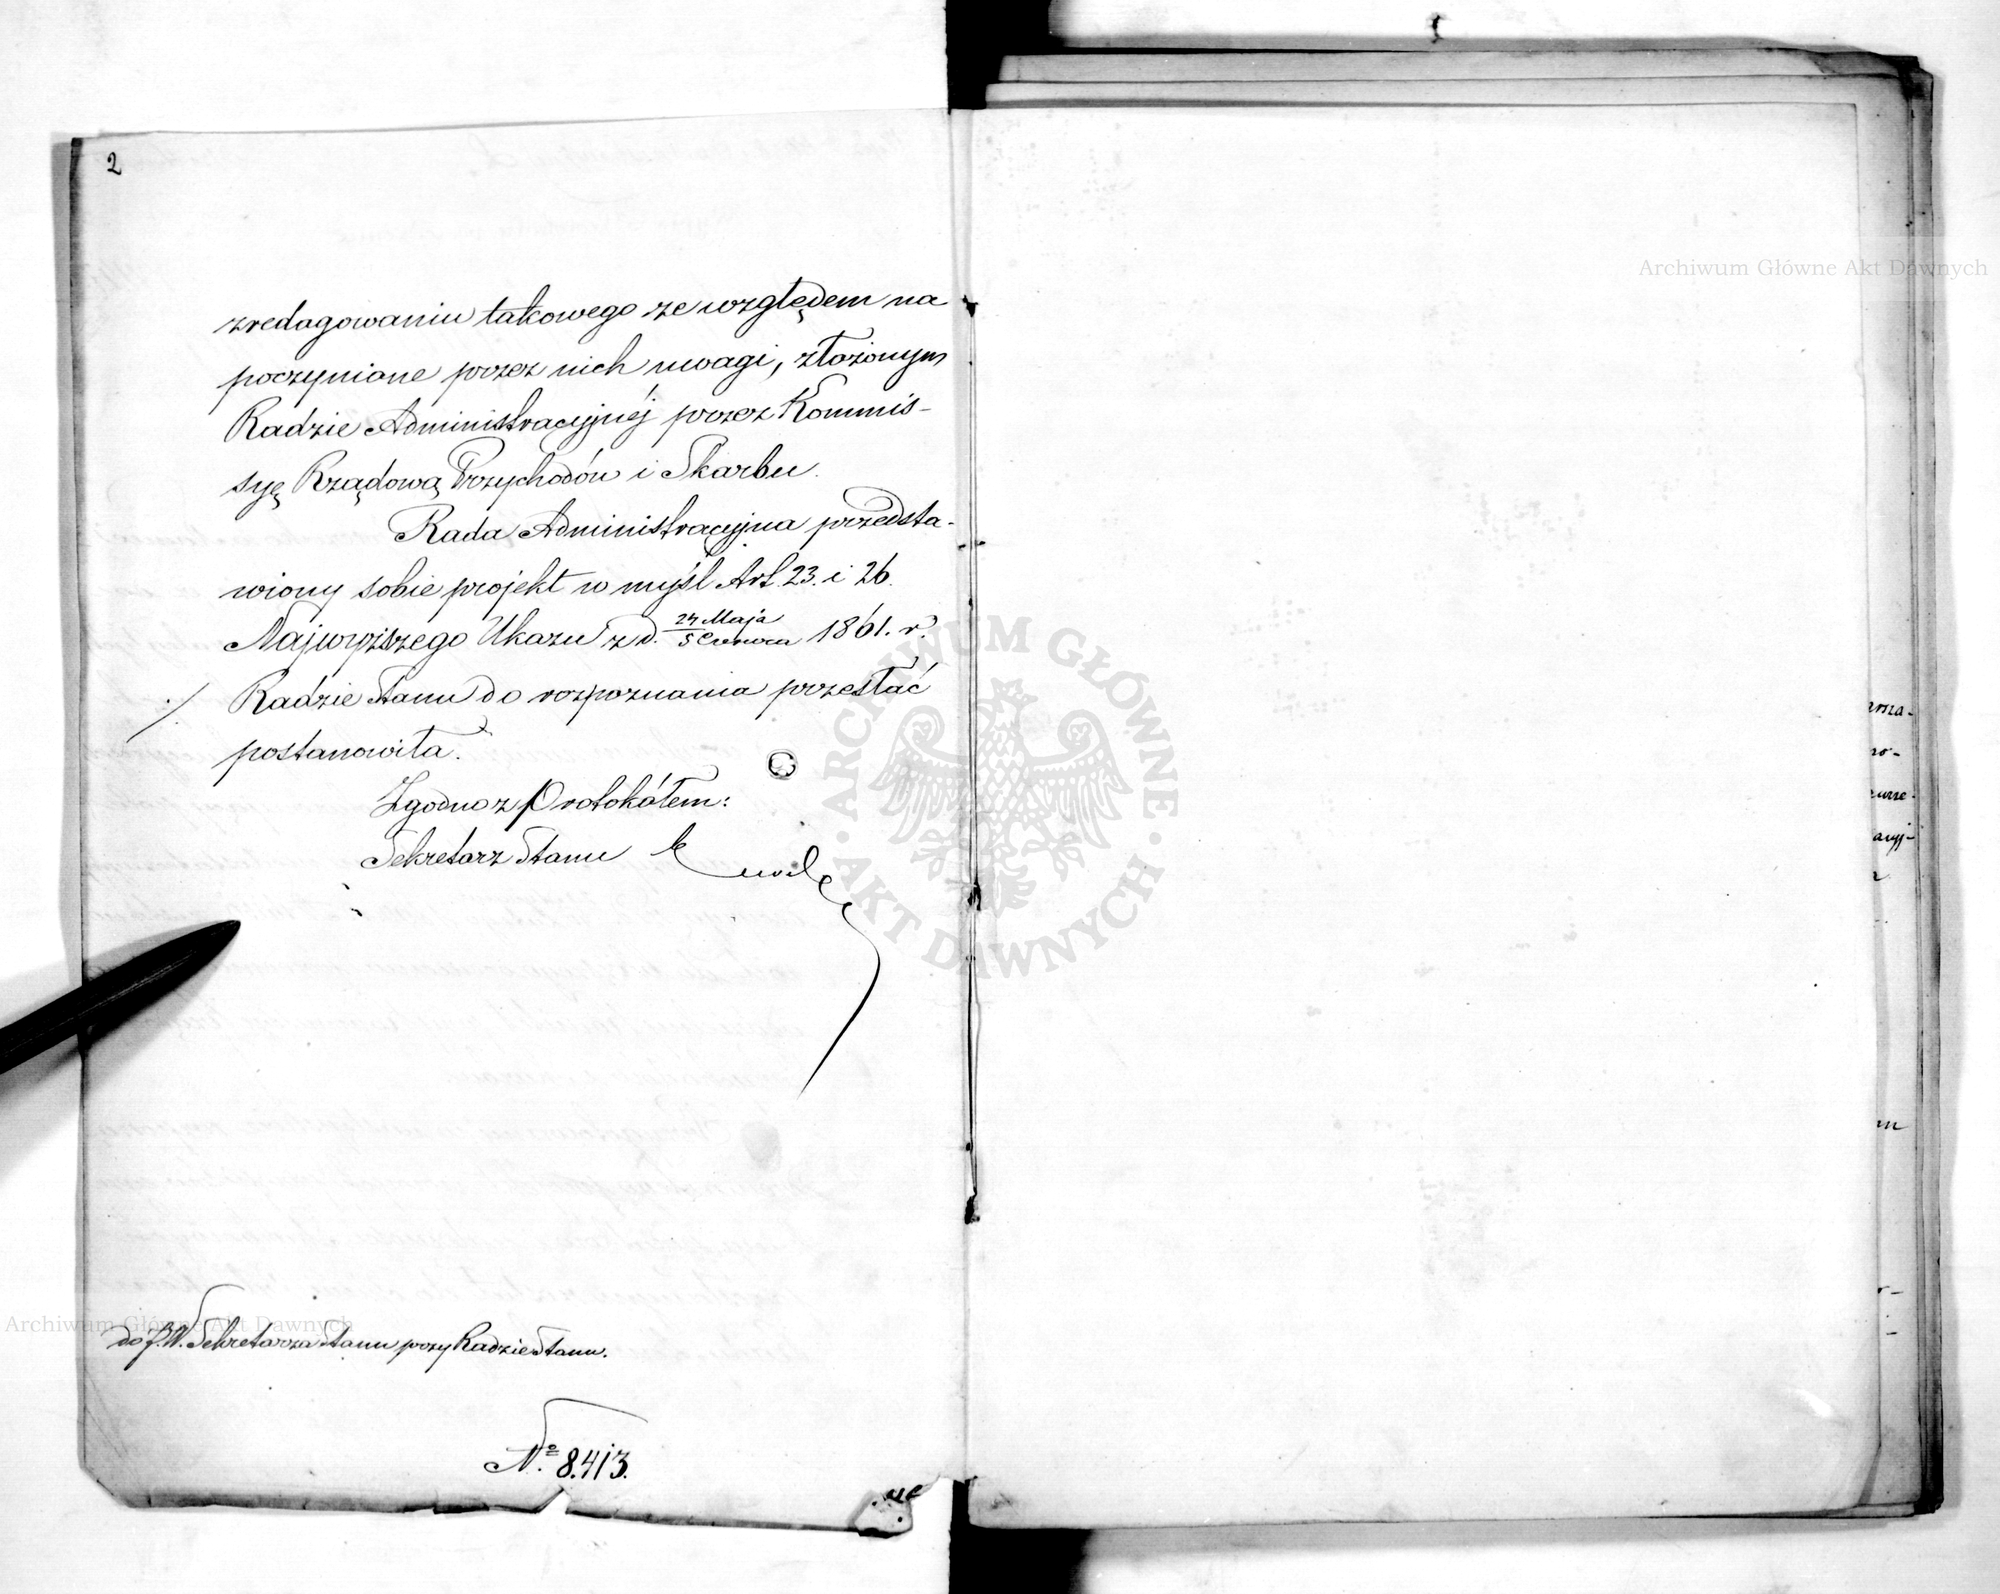 2
zredagowaniu takowego ze względem na
poczynione przez nich uwagi, złożonym
Radzie Administracyjnéj przez Kommis-
syę Rządową Przychodów i Skarbu.
Rada Administracyjna przedsta-
wiony sobie projekt w myśl Art. 23. i 26.
Najwyższego Ukazu z d. 24 Maja / 5 Czerwca 1861. r.
Radzie Stanu do rozpoznania przesłać
postanowiła.
Zgodno z Protokółem:
Sekretarz Stanu
do J.W. Sekretarza Stanu przy Radzie Stanu.
No. 8.413.
Archiwum Główne Akt Dawnych
Archiwum Główne Akt Dawnych
ARCHIWUM GŁÓWNE · AKT DAWNYCH ·